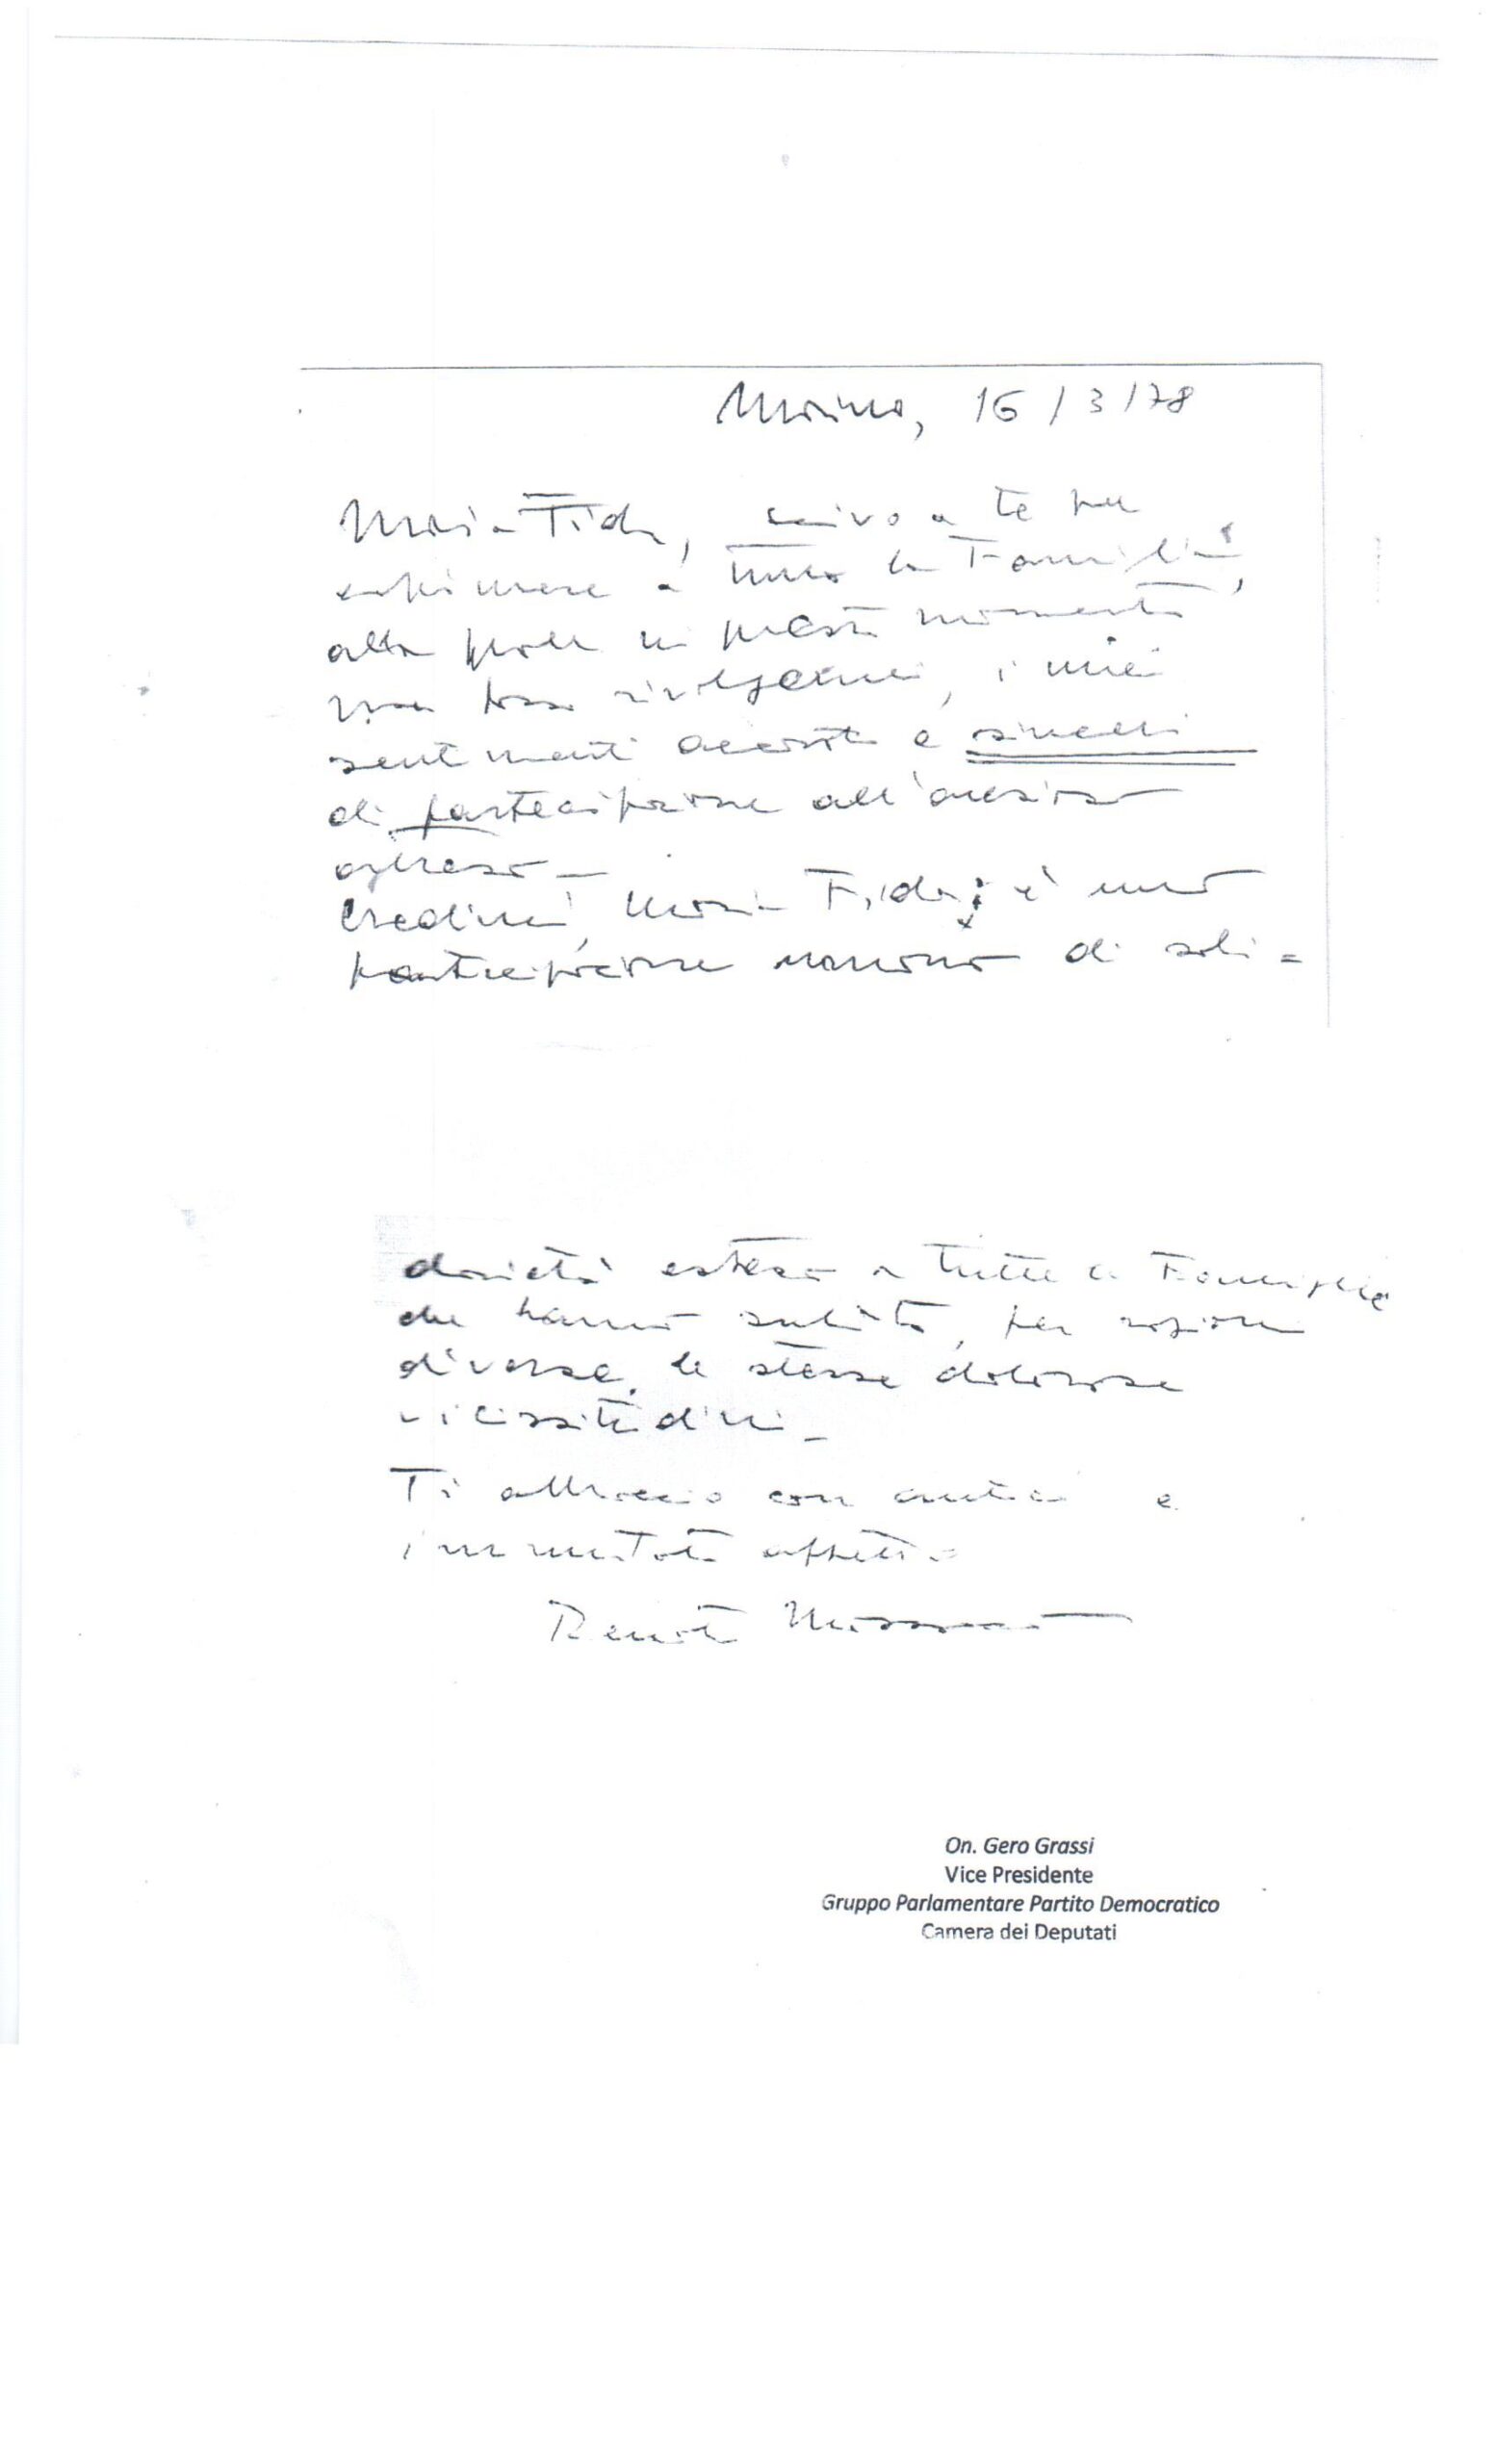 16/3/78
Maria Fida, scrivo a te per
esprimere a tutta la Famiglia,
alla quale in questo momento
non posso rivolgermi, i miei
sentimenti accorati e sinceri
di partecipazione all'ansiosa
attesa _
Credimi, Maria Fida, è una
partecipazione umana di soli=
darietà estesa a tutte le Famiglie
che hanno subito, per ragioni
diverse, le stesse dolorose
vicissitudini _
Ti abbraccio con antico e
immutato affetto
Renato
On. Gero Grassi
Vice Presidente
Gruppo Parlamentare Partito Democratico
Camera dei Deputati